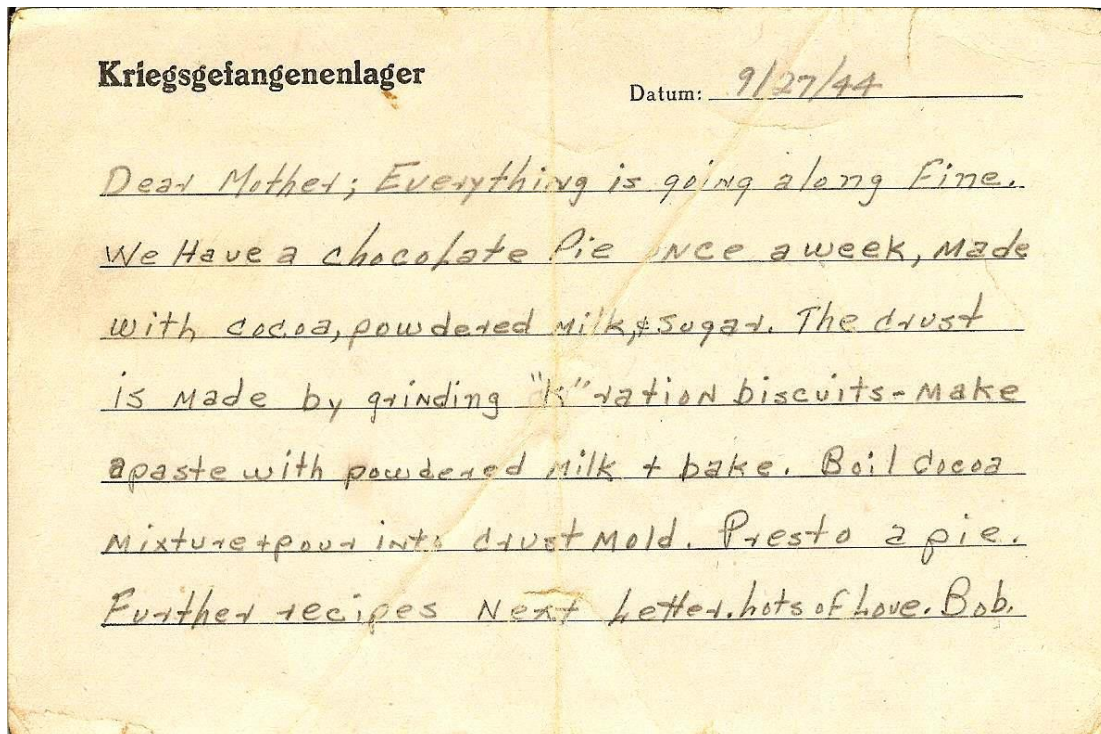 Kriegsgefangenenlager
Datum: 9/27/44
Dear Mother; Everything is going along Fine.
We Have a chocolate Pie once a week, Made
with cocoa, powdered Milk, & Sugar. The crust
is Made by grinding "K" ration biscuits - Make
a paste with powdered Milk + bake. Boil cocoa
Mixture + pour into crust Mold. Presto a pie.
Further recipes Next Letter. Lots of Love. Bob.